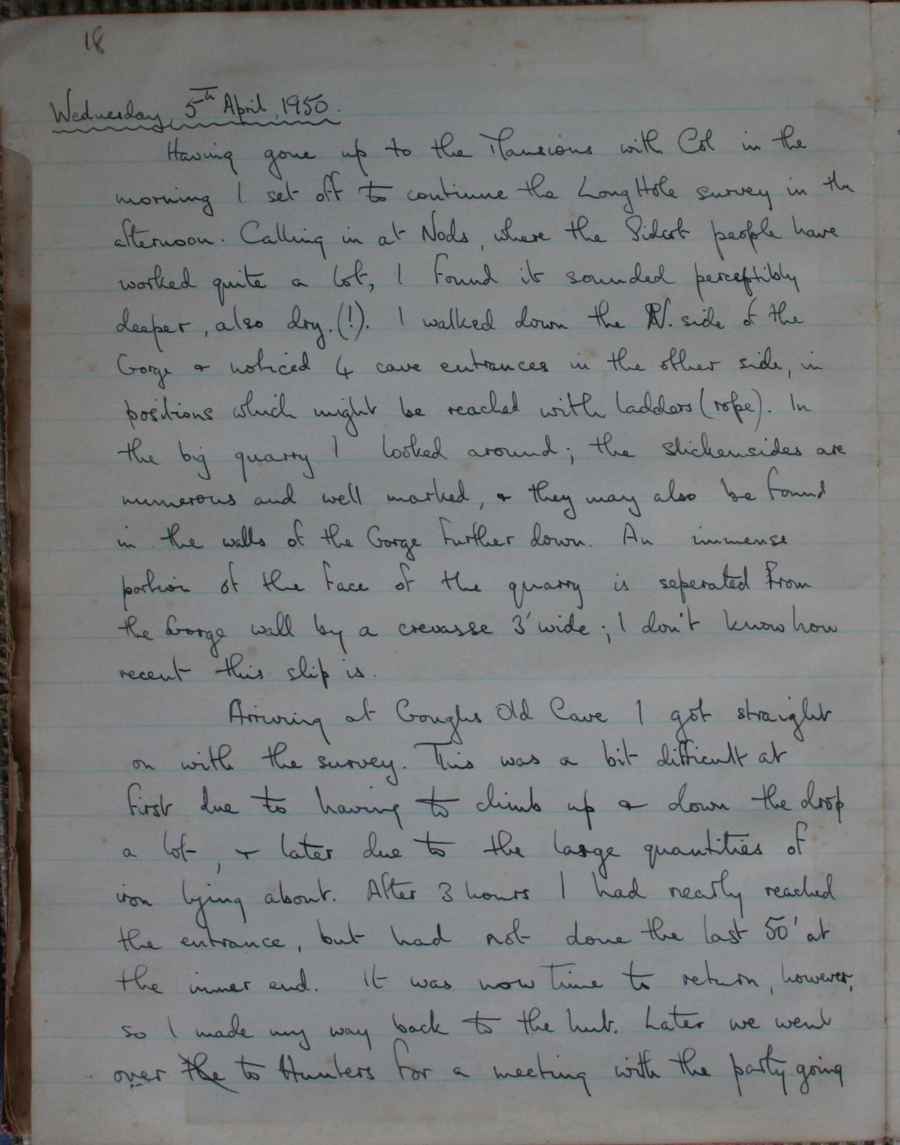 18
Wednesday, 5th April, 1950.
Having gone up to the Mansions with Col in the
morning I set off to continue the Long Hole survey in the
afternoon. Calling in at Nods, where the Sidcot people have
worked quite a lot, I found it sounded perceptibly
deeper, also dry.(!). I walked down the N. side of the
Gorge & noticed 4 cave entrances in the other side, in
positions which might be reached with ladders (rope). In
the big quarry I looked around; the slickensides are
numerous and well marked, & they may also be found
in the walls of the Gorge further down. An immense
portion of the face of the quarry is seperated from
the Gorge wall by a crevasse 3' wide; I don't know how
recent this slip is.
Arriving at Goughs Old Cave I got straight
on with the survey. This was a bit difficult at
first due to having to climb up & down the drop
a lot, & later due to the large quantities of
iron lying about. After 3 hours I had nearly reached
the entrance, but had not done the last 50' at
the inner end. It was now time to return, however,
so I made my way back to the hut. Later we went
over the to Hunters for a meeting with the party going